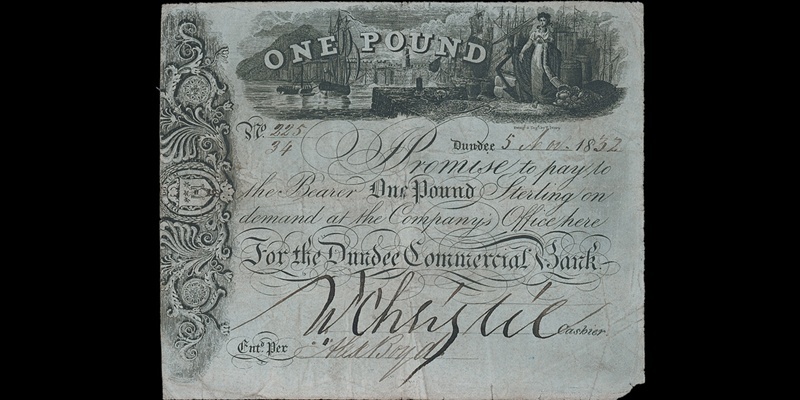 ONE POUND
No. 225
34
Dundee 5 Nov. 1832
I Promise to pay to
the Bearer One Pound Sterling on
demand at the Companys Office here
For the Dundee Commercial Bank.
W Christie Cashier
Entd. Per Alex Boyd